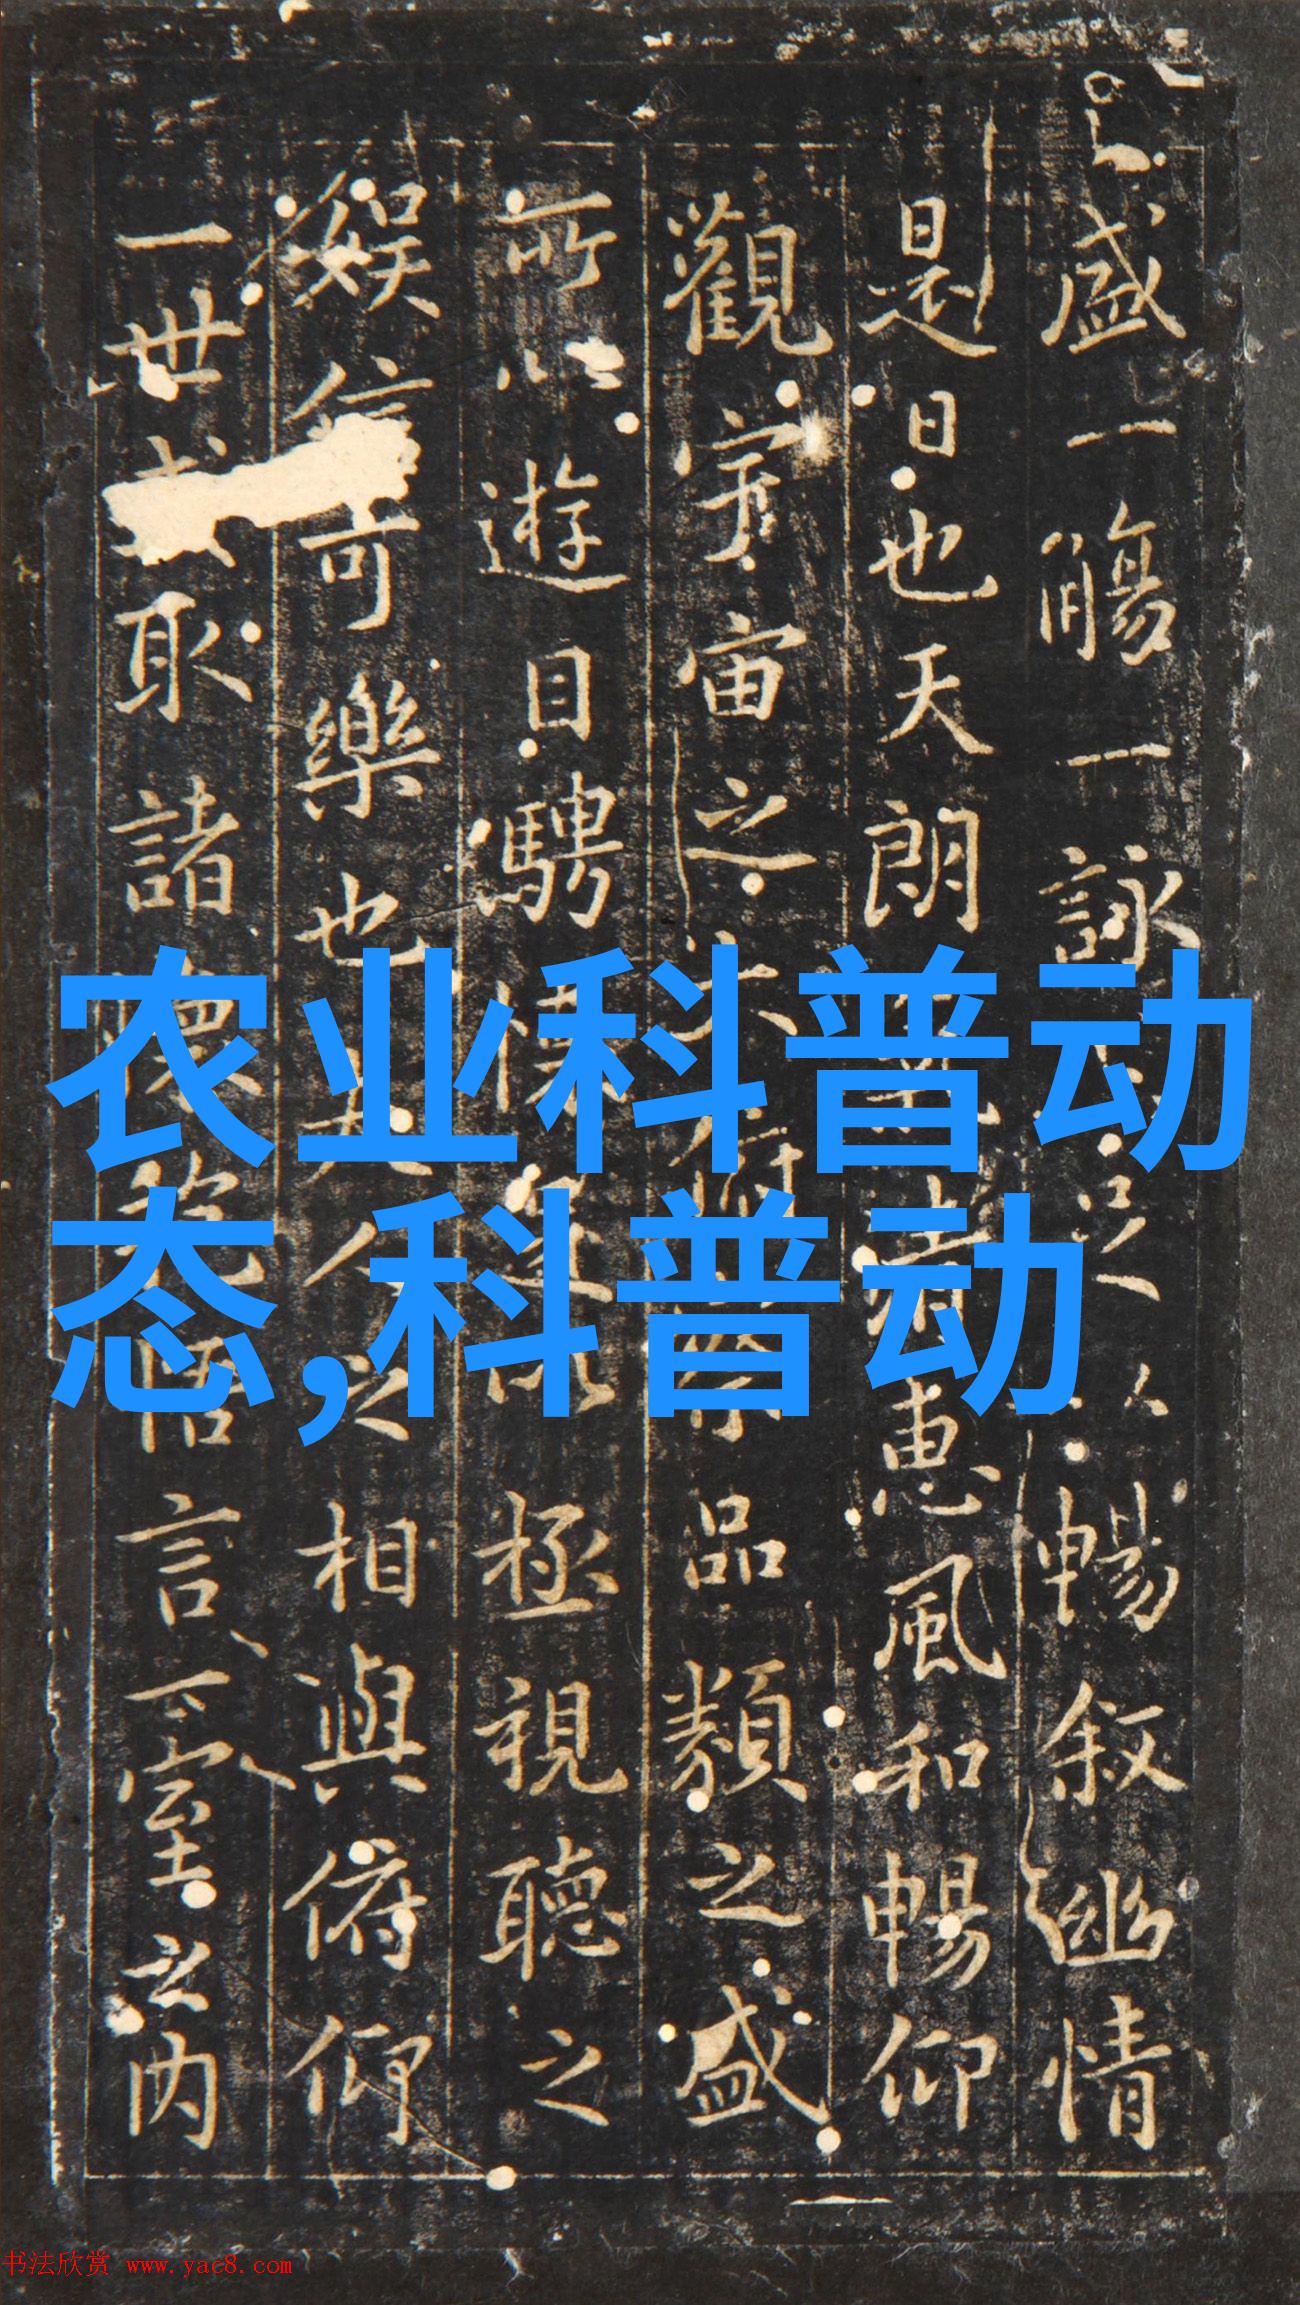 盛一觴一詠足以暢叙幽情
是日也天朗氣清惠風和暢仰
觀宇宙之大俯察品類之盛
所以遊目騁懷足以極視聽之
娱信可樂也夫人之相與俯仰
一世或取諸懷抱悟言一室之内
农业科普动
态,科普动
书法欣赏 www.yac8.com